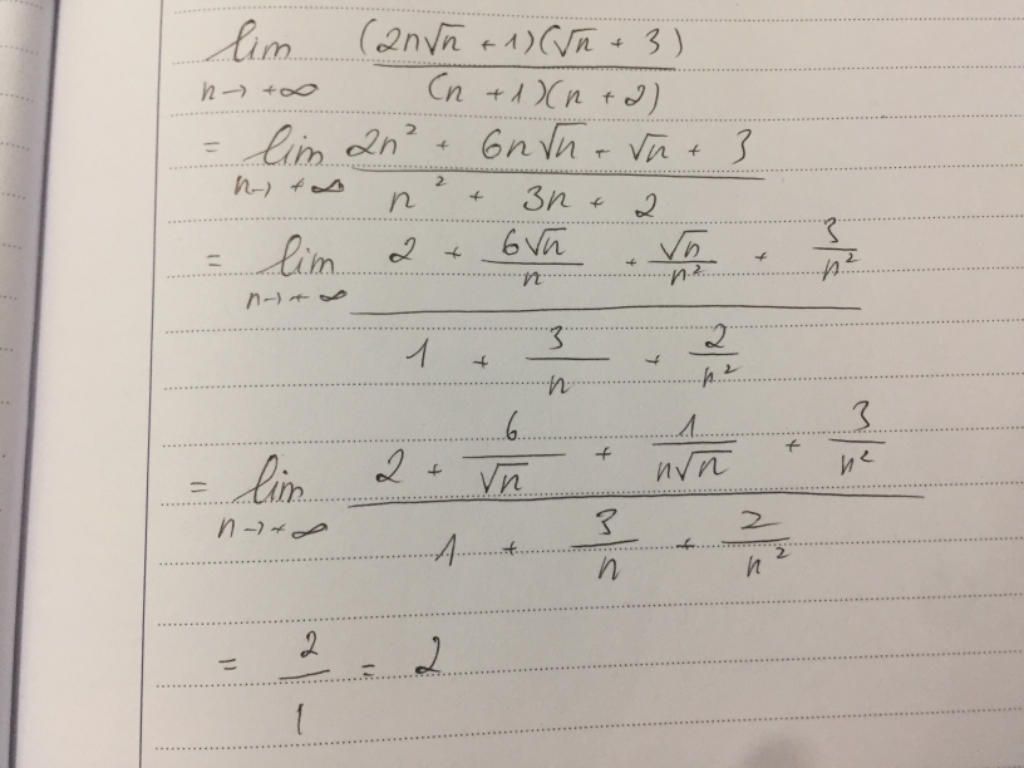 lim (2n√n + 1)(√n + 3)
n → +∞ (n + 1)(n + 2)
= lim 2n² + 6n√n + √n + 3
n → +∞ n² + 3n + 2
= lim 2 + 6√n/n + √n/n² + 3/n²
n → +∞
1 + 3/n + 2/n²
= lim 2 + 6/√n + 1/n√n + 3/n²
n → +∞
1 + 3/n + 2/n²
= 2/1 = 2